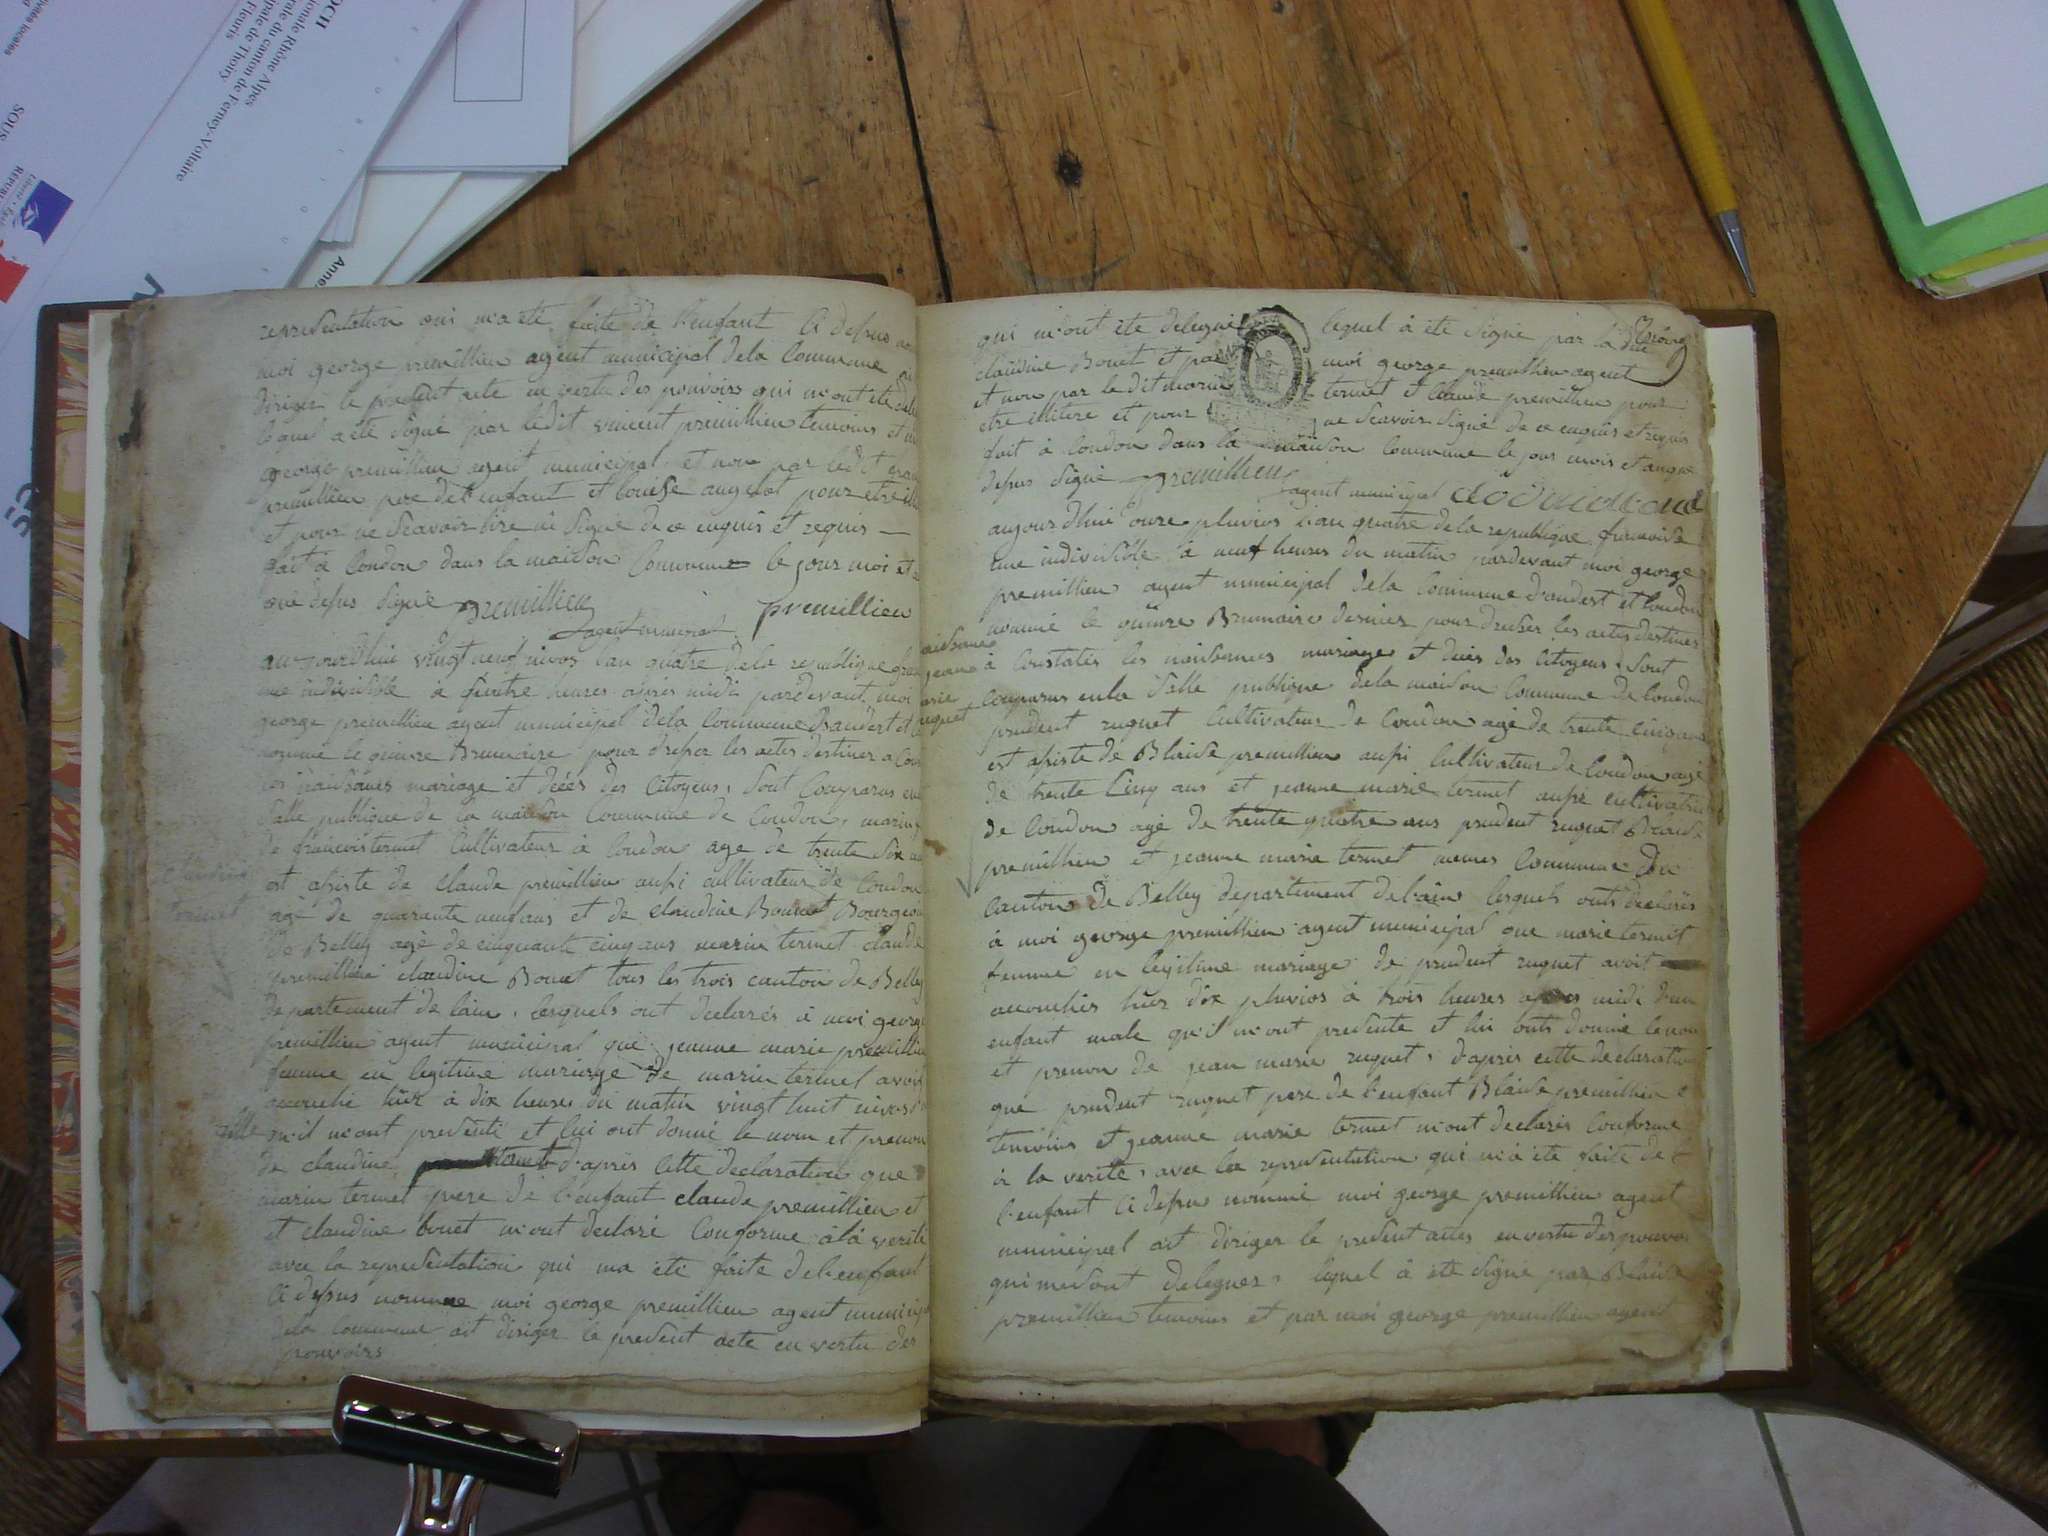 OCII
ionale Rhône Alpes
érale du canton de Ferney-Voltaire
ipale de Thoiry
Fleuris
SOUS
Anne
representation qui m'a été faite de l'enfant Ci depus
moi george premillieu agent municipal dela Commune
diriger le present acte en vertu des pouvoirs qui m'ont ete
lequel a été Signé par ledit vincent premillieu temoins et
george premillieu agent municipal et non par ledit
premillieu pere de l'enfant et louise angelot pour etre
et pour ne Scavoir lire ni Signé de ce enquis et requis —
fait à Coudon dans la maison Commune le jour moi et
que depus Signé premillieu premillieu
agent municipal
aujourdhui vingt neuf nivos l'an quatre dela republique
une indivisible à heures après midi pardevant moi
george premillieu agent municipal dela Commune Dandert et
nommé le quinze Brumaire pour dresser les actes destines a
les naisances mariage et décés des Citoyens, Sont Comparus en
Salle publique de la maison Commune de Coudon, marin
de francois termet Cultivateur à Coudon age de trente Six
est asisté de Claude premillieu aussi cultivateur de Coudon
agé de quarante neufans et de claudine Bonnet Bourgeois
de Belley agé de cinquante cinq ans marin termet claude
premillieu claudine Bonet tous les trois canton de Belley
departement de lain, lesquels ont declarés à moi george
premillieu agent municipal que jeanne marie premillieu
femme en legitime mariage de marin termet avoit
accouché hier à dix heures du matin vingt huit nivos
fille qu'il m'ont presenté et lui ont donné le nom et prenom
de claudine termet d'après cette declaration que
marin termet pere de l'enfant claude premillieu et
et claudine bonet m'ont declaré Conforme à la verité
avec la representation qui ma été faite de l'enfant
Ci depus nomme moi george premillieu agent municip
dela commune ait diriger le present acte en vertu des
pouvoirs
claudine
termet
qui m'ont été delegué lequel à été Signé par la
claudine Bonet et par moi george premillieu agent
et non par le dit marin termet et Claude premillieu pour
etre illitere et pour ne Scavoir Signé de ce enquis et requis
fait à Coudon dans la maison Commune le jour mois et anque
depus Signé premillieu
agent municipal
aujourdhui onze pluvios l'an quatre dela republique francoise
une indivisible à neuf heures du matin pardevant moi george
premillieu agent municipal dela Commune d'andert et Coudon
nommé le quinze Brumaire dernier pour dresser les actes destines
à Constater les naisances mariage et décés des Citoyens. Sont
Comparus enla Salle publique dela maison Commune de Coudon
prudent ruguet Cultivateur de Coudon agé de trente cinq ans
est asisté de Blaise premillieu aussi Cultivateur de Coudon agé
de trente Cinq ans et jeanne marie termet aussi cultivatrice
de Coudon agé de trente quatre ans prudent ruguet Blaise
premillieu et jeanne marie termet memes Commune Du
Canton de Belley departement de l'ain lesquels ont declarés
à moi george premillieu agent municipal que marie termet
femme en legitime mariage de prudent ruguet avoit
accouchés hier dix pluvios à trois heures après midi d'un
enfant male qu'il m'ont presenté et lui onts donné le nom
et prenom de jean marie ruguet, d'après cette declaration
que prudent ruguet pere de l'enfant Blaise premillieu
temoins et jeanne marie termet m'ont declarés Conforme
à la verité, avec la representation qui m'a été faite de
l'enfant Ci depus nommé moi george premillieu agent
municipal ait diriger le present actes en vertu des pouvoirs
qui me sont deleguer, lequel à été Signé par Blaise
premillieu temoins et par moi george premillieu agent
naisance
jean
marie
ruguet